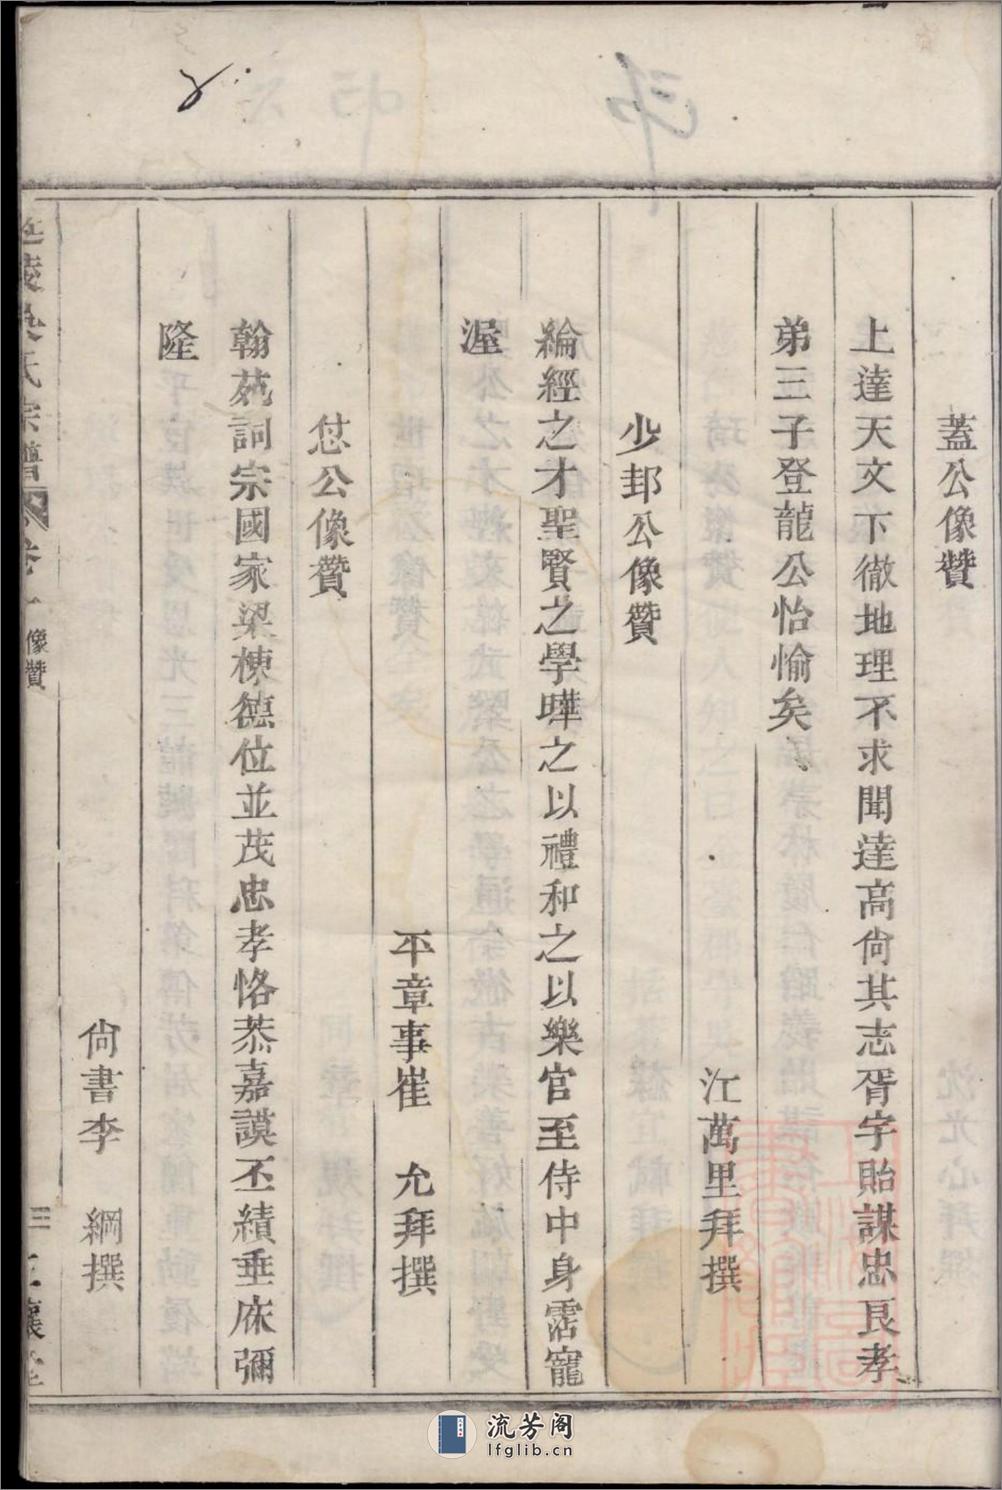 蓋公像贊
上達天文下徹地理不求聞達高尙其志胥宇貽謀忠良孝
弟三子登龍公怡愉矣
江萬里拜撰
少邽公像贊
綸經之才聖賢之學曄之以禮和之以樂官至侍中身霑寵
渥
平章事崔 允拜撰
怤公像贊
翰苑詞宗國家梁棟德位並茂忠孝恪恭嘉謨丕績垂庥彌
隆
尙書李 綱撰
延陵吳氏宗譜 卷一 像贊 三 三讓堂
流芳阁
lfglib.cn